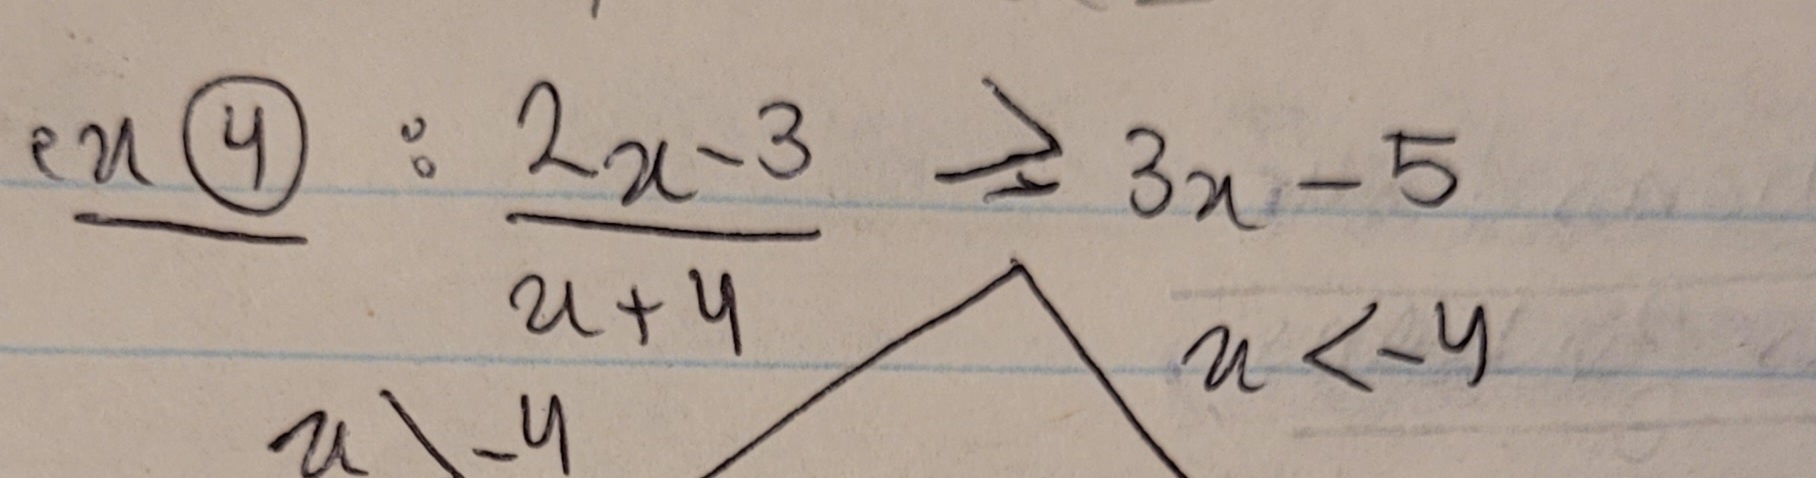 ex ④ : (2x-3)/(x+4) ≥ 3x-5
x < -4
x > -4